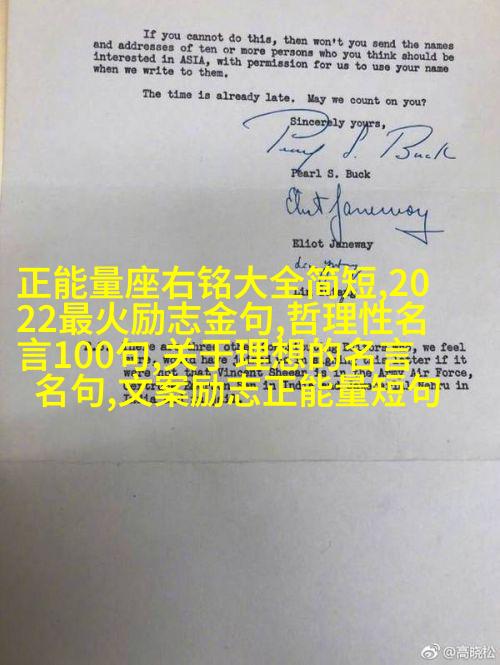 If you cannot do this, then won't you send the names
and addresses of ten or more persons who you think should be
interested in ASIA, with permission for us to use your name
when we write to them.
The time is already late. May we count on you?
Sincerely yours,
Pearl S. Buck
Pearl S. Buck
Eliot Janeway
Eliot Janeway
正能量座右铭大全简短,20
22最火励志金句,哲理性名
言100句,关于理想的名言
名句,文案励志正能量短句
we feel
letter if it
were not that Vincent Sheean is in the Army Air Force,
in
Nehru in
@高晓松